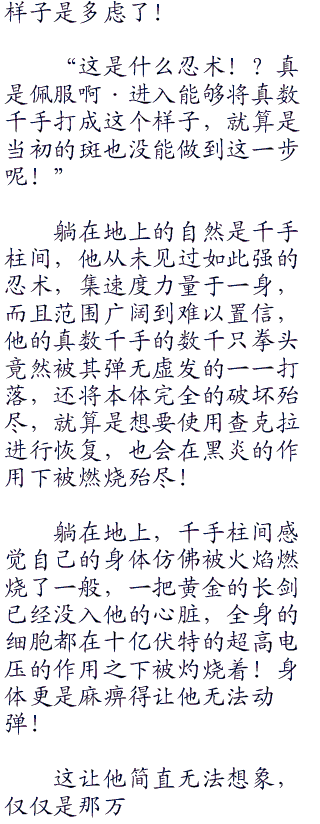 样子是多虑了！
“这是什么忍术！？真
是佩服啊·进入能够将真数
千手打成这个样子，就算是
当初的斑也没能做到这一步
呢！”
躺在地上的自然是千手
柱间，他从未见过如此强的
忍术，集速度力量于一身，
而且范围广阔到难以置信，
他的真数千手的数千只拳头
竟然被其弹无虚发的一一打
落，还将本体完全的破坏殆
尽，就算是想要使用查克拉
进行恢复，也会在黑炎的作
用下被燃烧殆尽！
躺在地上，千手柱间感
觉自己的身体仿佛被火焰燃
烧了一般，一把黄金的长剑
已经没入他的心脏，全身的
细胞都在十亿伏特的超高电
压的作用之下被灼烧着！身
体更是麻痹得让他无法动
弹！
这让他简直无法想象，
仅仅是那万